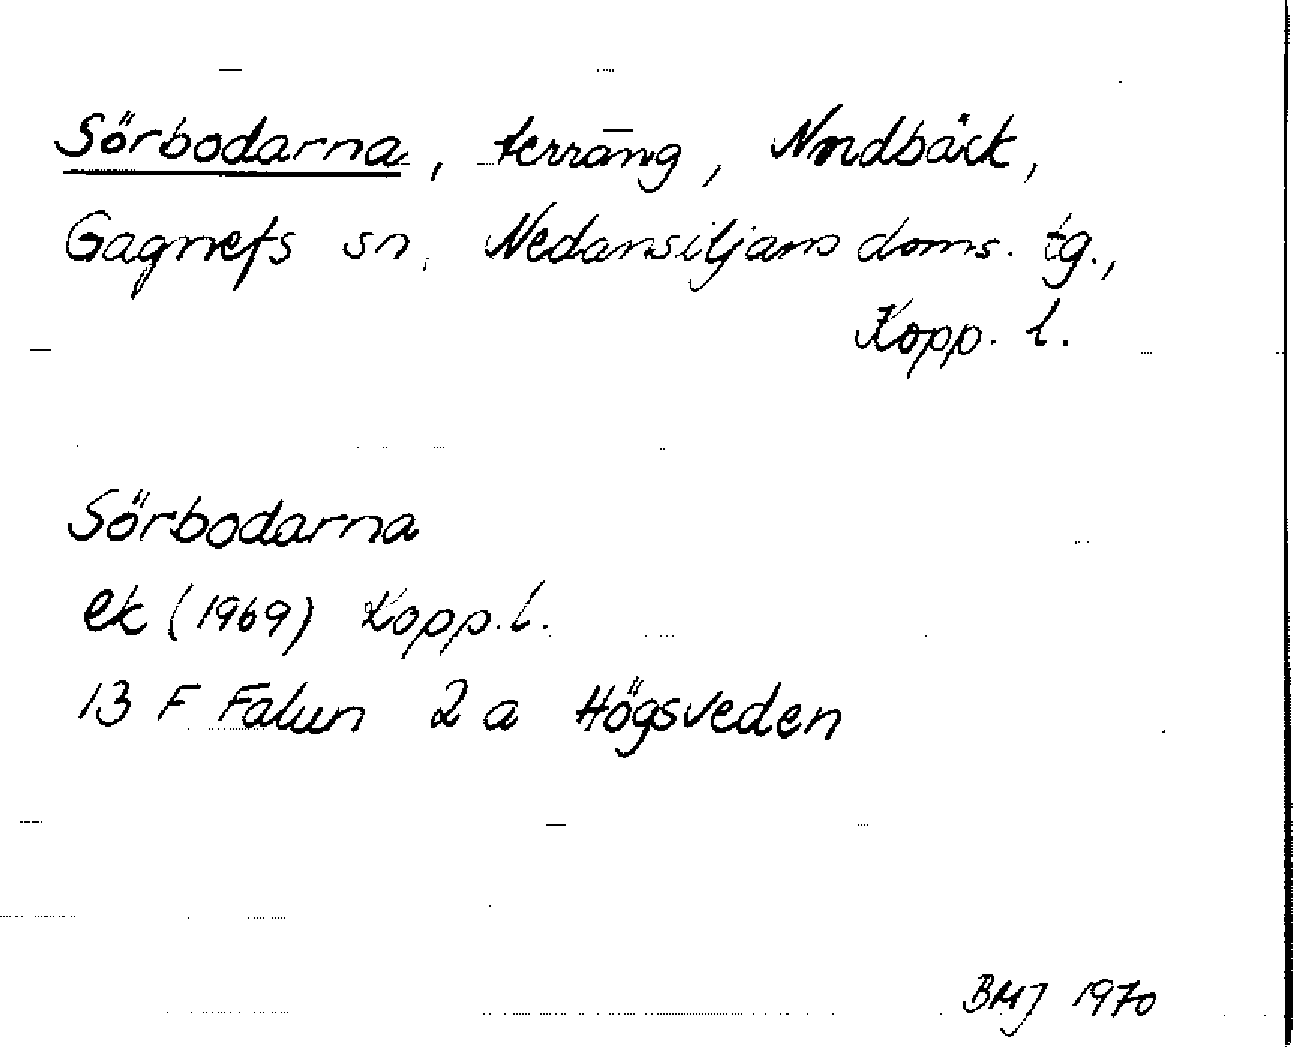 Sörbodarna, terräng, Nordbäck,
Gagnefs sn, Nedansiljans doms. tg.,
Kopp. l.
Sörbodarna
ek (1969) Kopp. l.
13 F Falun 2 a Högsveden
BMJ 1970